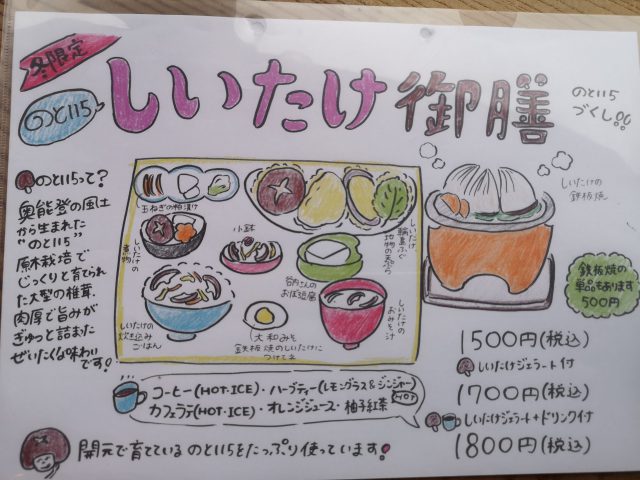 冬限定
のと115
しいたけ御膳
のと115
づくし!!
のと115って?
奥能登の風土
から生まれた
"のと115"
原木栽培で
じっくりと育てられ
た大型の椎茸。
肉厚で旨みが
ぎゅっと詰まった
ぜいたくな味わい
です!
玉ねぎの粕漬け
しいたけの
煮物
小鉢
しいたけ、
輪島ふぐ
地物の天ぷら
谷内さんの
おぼろ豆腐
しいたけの
炊き込み
ごはん
大和みそ
鉄板焼のしいたけに
つけてネ
しいたけの
おみそ汁
しいたけの
鉄板焼
鉄板焼の
単品もあります
500円
1500円(税込)
しいたけジェラート付
1700円(税込)
しいたけジェラート+ドリンク付
1800円(税込)
コーヒー(HOT・ICE)・ハーブティー(レモングラス&ジンジャー)
HOT
カフェラテ(HOT・ICE)・オレンジジュース・柚子紅茶
開元で育てているのと115をたっぷり使っています!